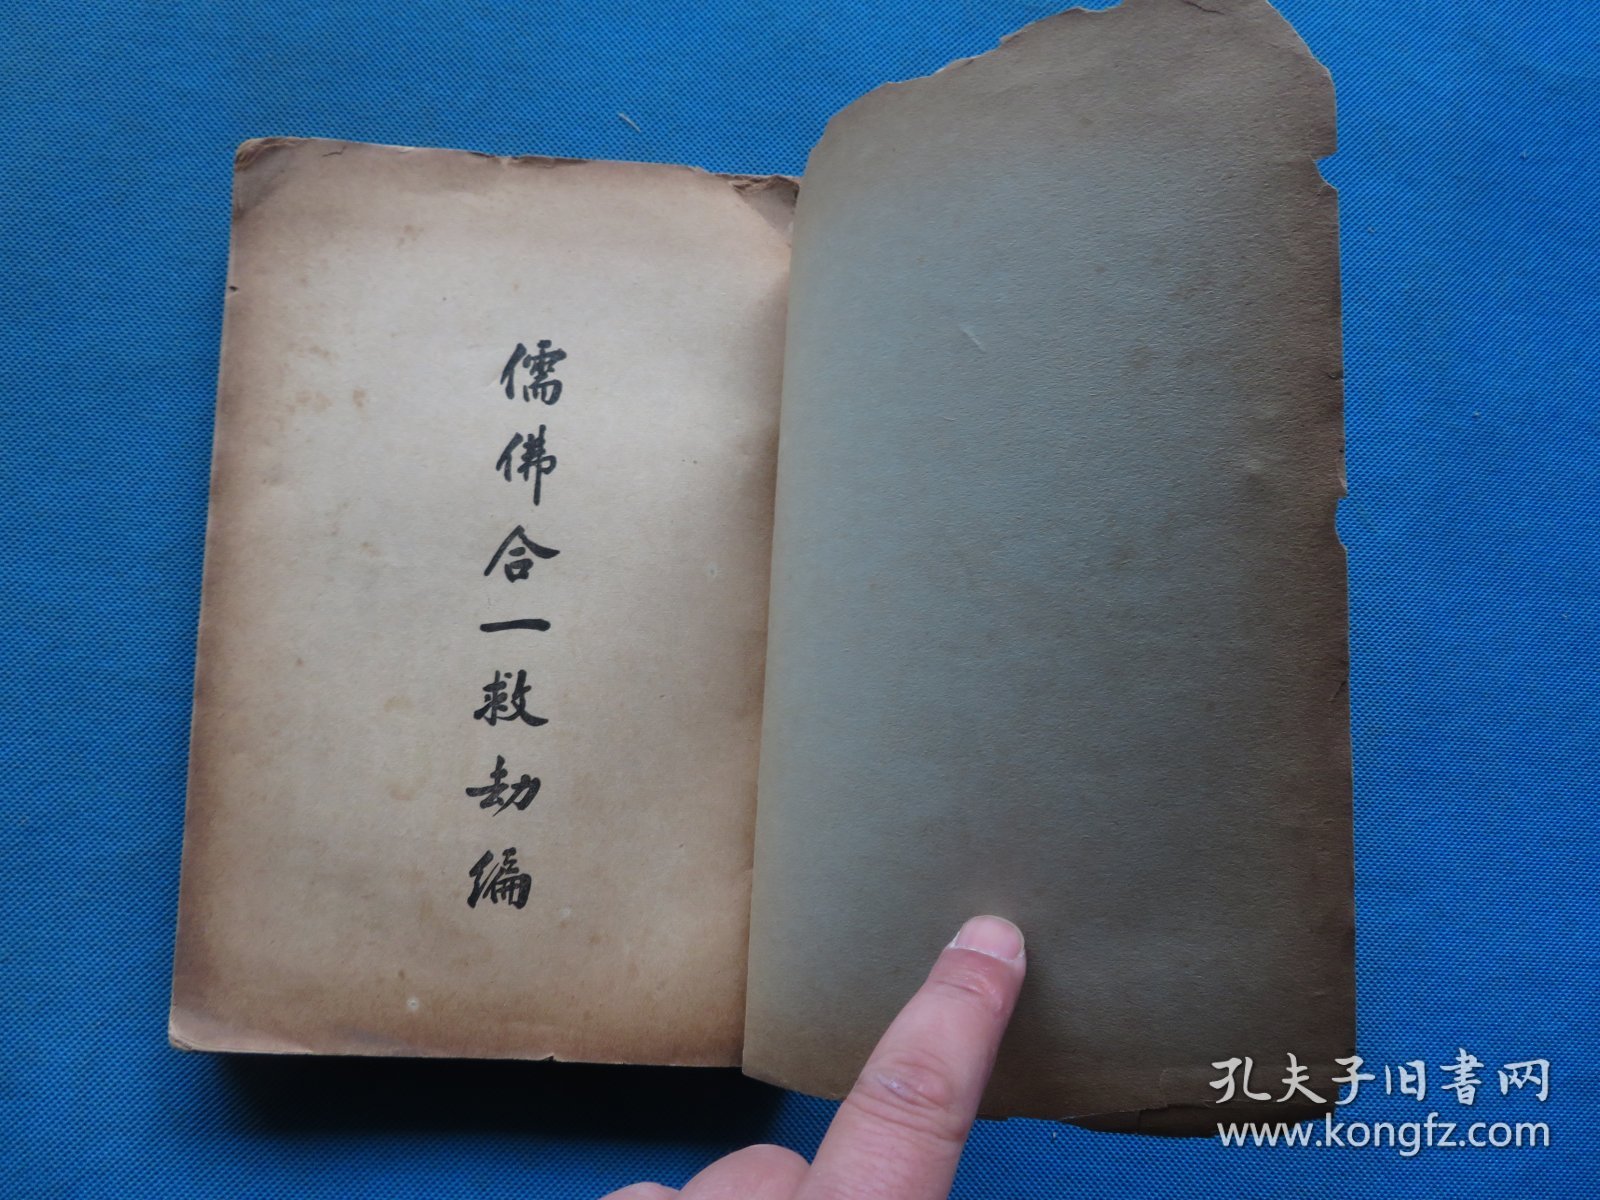 儒佛合一救劫編
孔夫子旧書网
www.kongfz.com